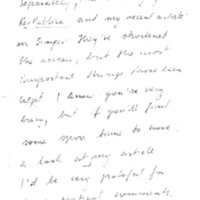 separately,
Res Publica and my recent article
on Singer. They've shortened
the review, but the most
important things have been
kept. I know you're very
busy, but if you'll find
some spare time to have
a look at my article
I'd be very grateful for
critical comments.